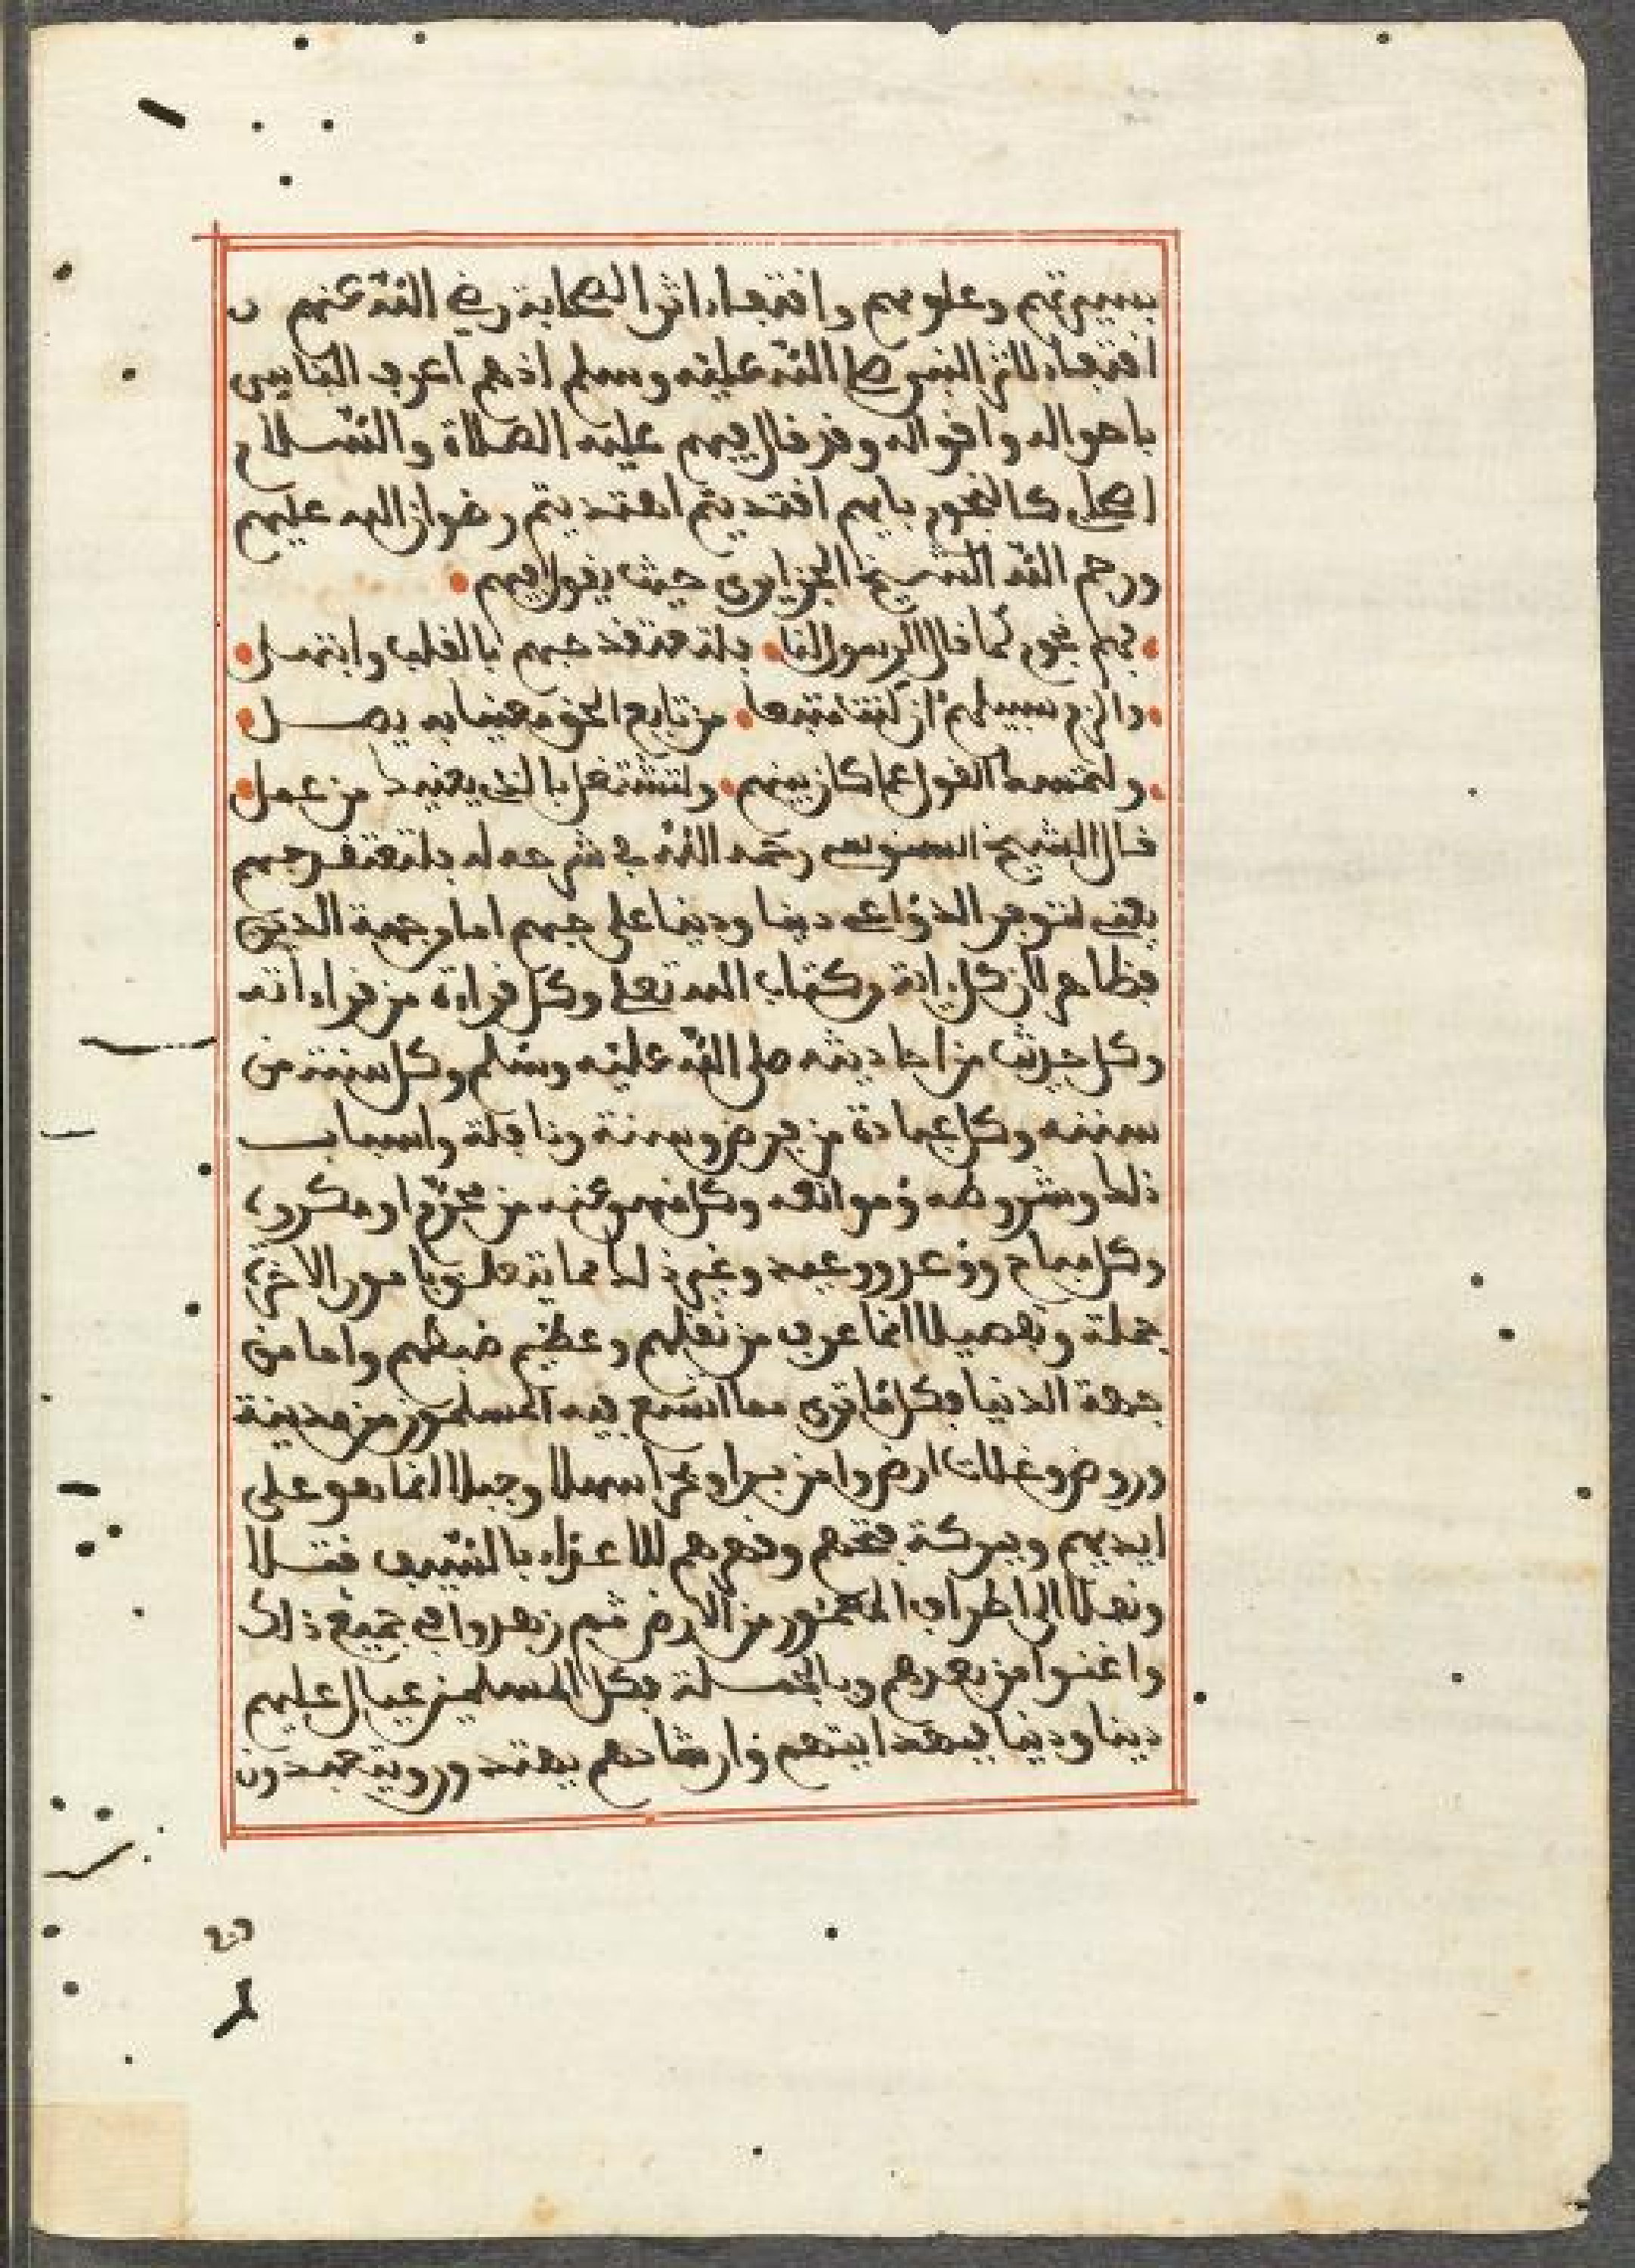 بسيرتهم وعلومهم واقتفاء اثر الصحابة رضي الله عنهم
اقتفاء لاثر النبي صلى الله عليه وسلم اذ هم اعرف الناس
باحواله واقواله وقد قال فيهم عليه الصلاة والسلام
اصحابي كالنجوم بايهم اقتديتم اهتديتم رضوان الله عليهم
ورحم الله الشيخ الجزايري حيث يقول فيهم
فهم نجوم كما قال الرسول لنا فلتعتقد حبهم بالقلب وابتهل
والزم سبيلهم ان كنت متبعا من تابع الحق معنيا به يصل
ولتمسك القول عما كان بينهم ولتشتغل بالذي يعنيك من عمل
قال الشيخ السنوسي رحمه الله في شرحه له فلتعتقد حبهم
يعني لتوفر الدواعي دينا ودنيا على حبهم اما من جهة الدين
فظاهر لان كل ءاية من كتاب الله تعلى وكل قراءة من قراءاته
وكل حديث من احاديثه صلى الله عليه وسلم وكل سنة من
سننه وكل عبادة من فرض وسنة ونافلة واسباب
ذلك وشروطه وموانعه وكل منهي عنه من محرم او مكروه
وكل مباح ووعد ووعيد وغير ذلك مما يتعلق بامور الاخرة
جملة وتفصيلا انما عرف من نقلهم وعظيم ضبطهم واما من
جهة الدنيا فكل ما ترى مما اتسع فيه المسلمون من مدينة
وروض وغلات ارض وامن برا وبحرا سهلا وجبلا انما هو على
ايديهم وببركة فتحهم وقهرهم للاعداء بالسيف قتلا
ونفلا الى اطراف المعمور من الارض ثم زهدوا في جميع ذلك
واغنوا من بعدهم وبالجملة فكل المسلمين عيال عليهم
دينا ودنيا فبهدايتهم وارشادهم يهتدون ويتعبدون